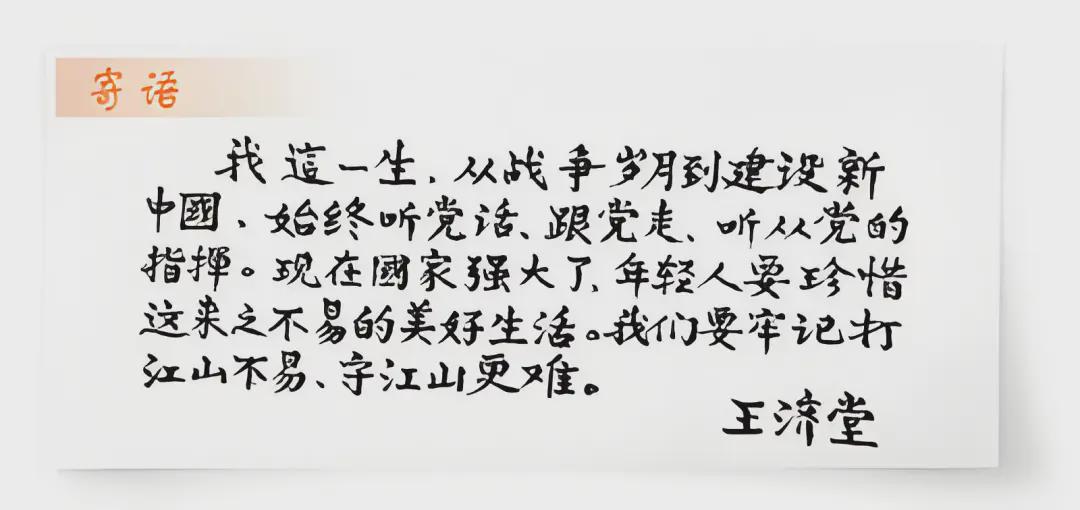 寄语
我這一生、从战争岁月到建设新
中國、始终听党话、跟党走、听从党的
指揮。现在國家强大了、年轻人要珍惜
这来之不易的美好生活。我们要牢记打
江山不易、守江山更难。
王济堂